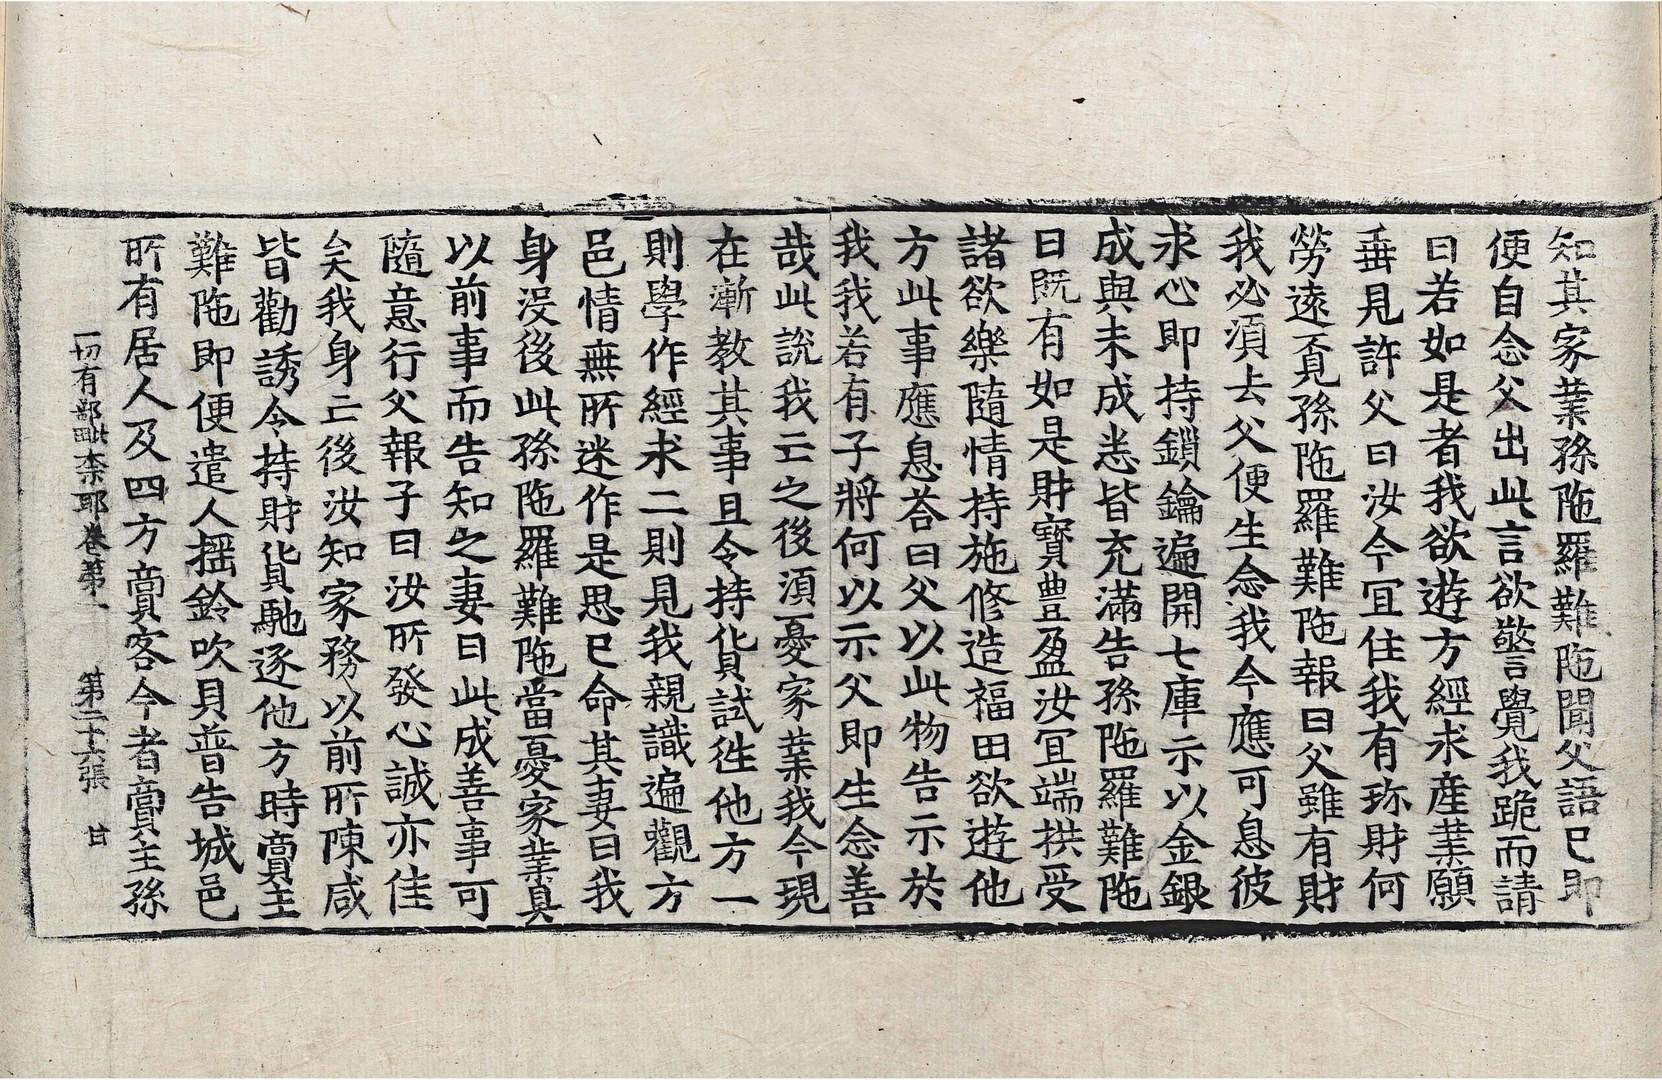 知其家業孫陁羅難陁聞父語已即
便自念父出此言欲警覺我跪而請
曰若如是者我欲遊方經求産業願
垂見許父曰汝今冝住我有珎財何
勞遠覔孫陁羅難陁報曰父雖有財
我必湏去父便生念我今應可息彼
求心即持鎖鑰遍開七庫示以金銀
成與未成悉皆充滿告孫陁羅難陁
曰既有如是財寳豊盈汝冝端拱受
諸欲樂隨情持施修造福田欲遊他
方此事應息荅曰父以此物告示於
我我若有子將何以示父即生念善
哉此說我亡之後湏憂家業我今現
在漸教其事且令持貨試往他方一
則學作經求二則見我親識遍觀方
邑情無所迷作是思已命其妻曰我
身沒後此孫陁羅難陁當憂家業具
以前事而告知之妻曰此成善事可
隨意行父報子曰汝所發心誠亦佳
矣我身亡後汝知家務以前所陳咸
皆勸誘令持財貨馳逐他方時啇主
難陁即便遣人摇鈴吹貝普告城邑
所有居人及四方啇客今者啇主孫
一切有部毗柰耶卷第一 第二十六張 甘